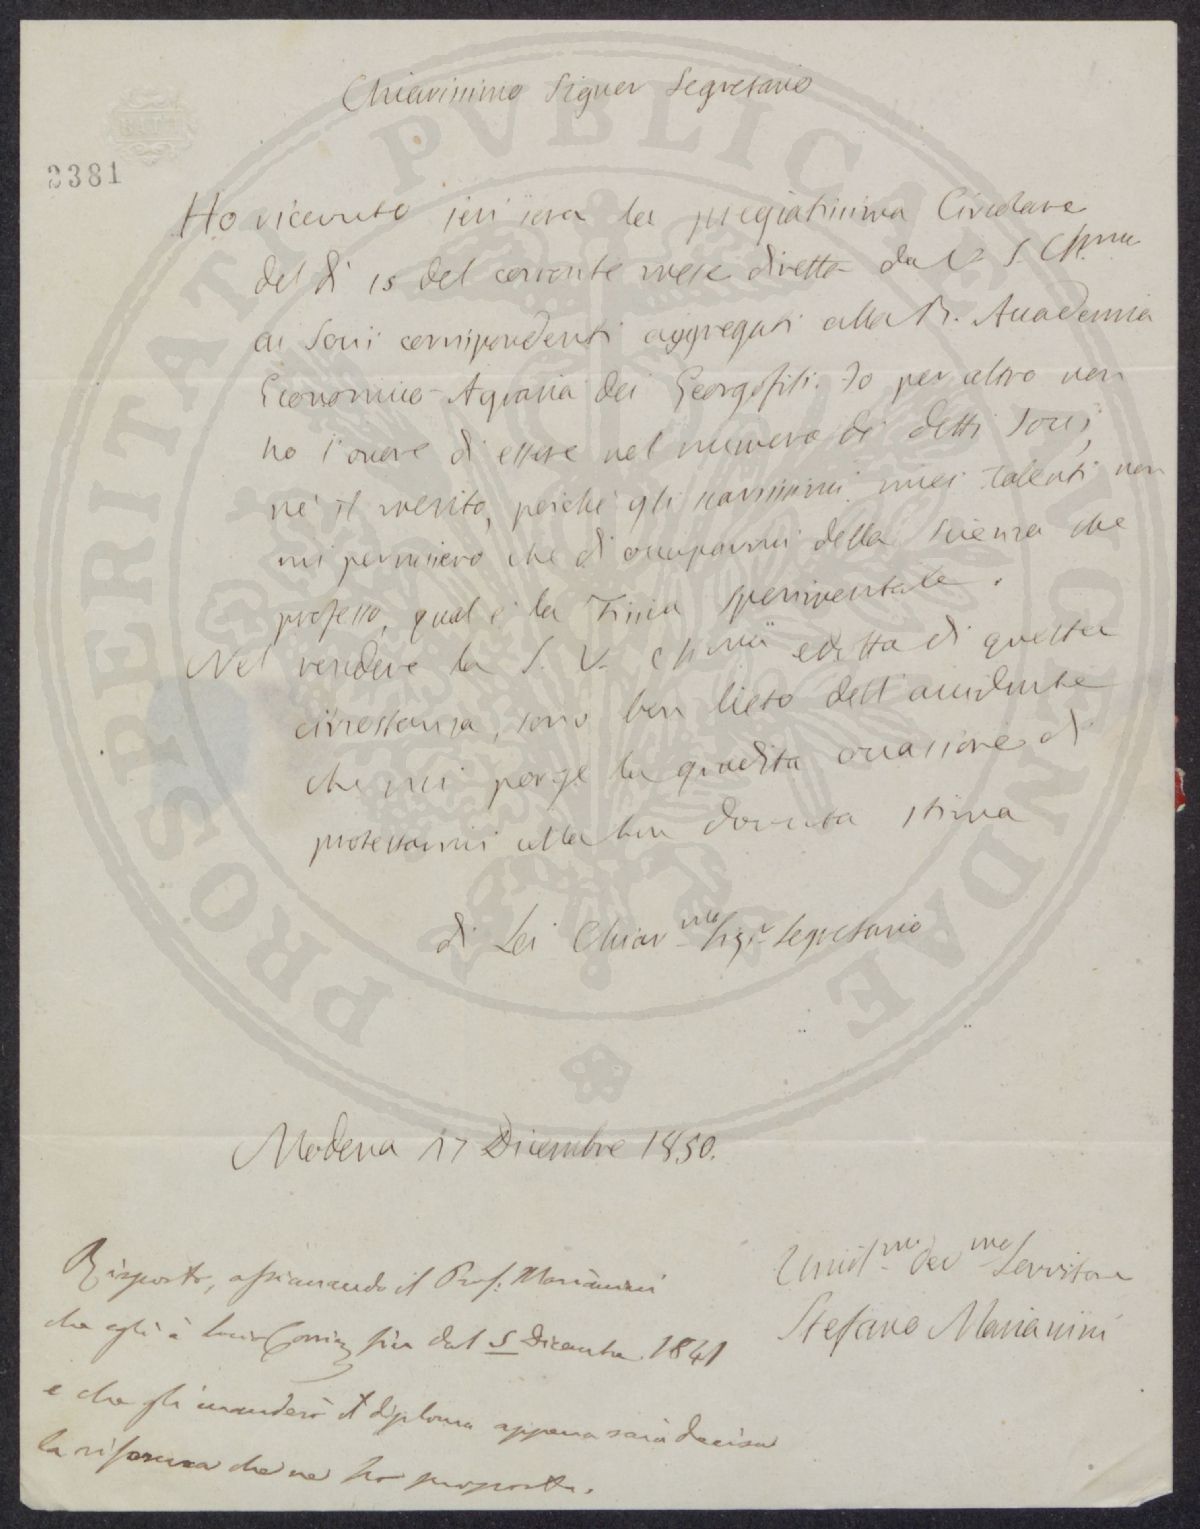 Chiarissimo Signor Segretario
2381
BATH
Ho ricevuto jeri sera la pregiatissima Circolare
del dì 15 del corrente mese diretta da V. S. Chma
ai Socii corrispondenti aggregati alla R. Accademia
Economico-Agraria dei Georgofili. Io per altro non
ho l'onore di essere nel numero di detti Socii,
nè il merito, poichè gli scarsissimi miei talenti non
mi permisero che di occuparmi della scienza che
professo, qual è la Fisica sperimentale.
Nel rendere la S. V. Chma edotta di questa
circostanza, sono ben lieto dell'accidente
che mi porge la gradita occasione di
protestarmi colla ben dovuta stima
di Lei Chiar.mo Sig.r Segretario
Modena 17 Dicembre 1850.
Umil.mo dev.mo Servitore
Stefano Marianini
Risposto, assicurando il Prof. Marianini
che egli è Socio Corrisp. fin dal 5 Dicembre 1841
e che gli manderò il diploma appena sarà decisa
la riforma che ne ho proposta.
PROSPERITATI PVBLICAE AVGENDAE